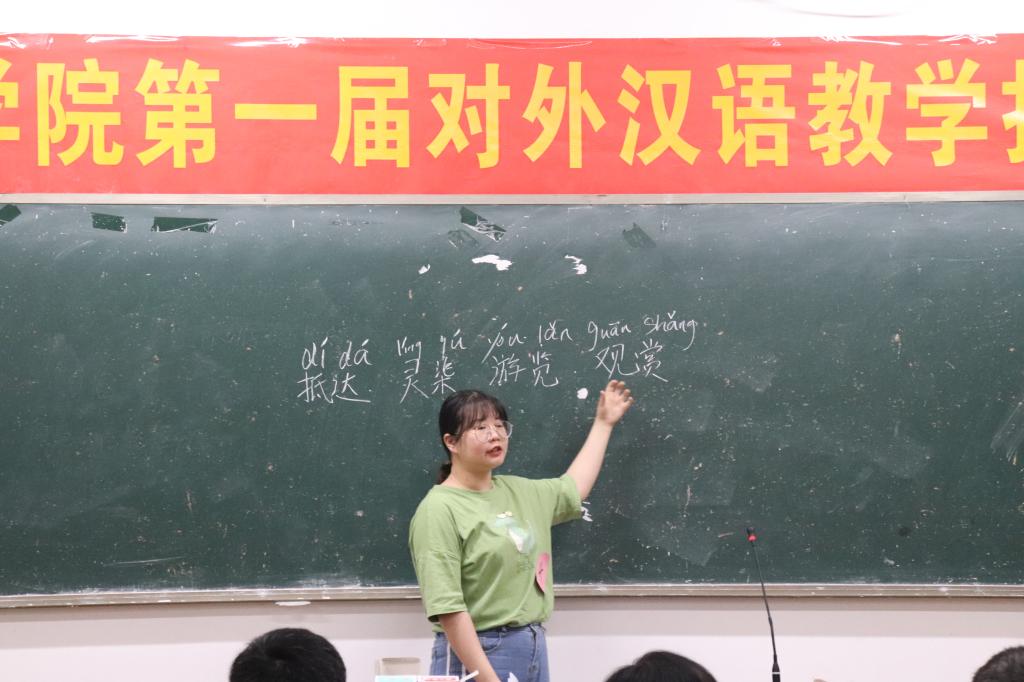 学院第一届对外汉语教学
dǐ dá líng qú yóu lǎn guān shǎng
抵达 灵渠 游览 观赏